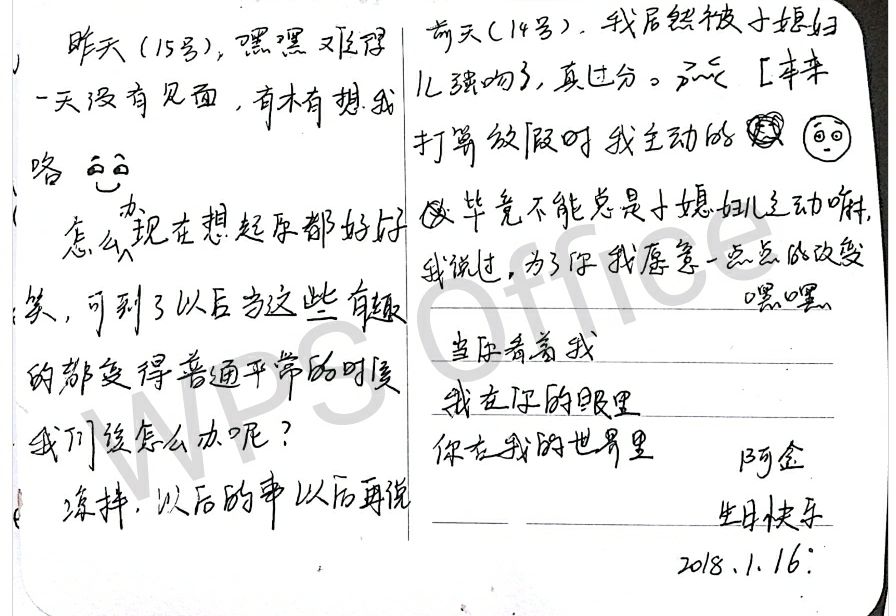 昨天(15号),嘿嘿难得
一天没有见面,有木有想我
咯
怎么办现在想起你都好好
笑,可到了以后当这些有趣
的都变得普通平常的时候
我们该怎么办呢?
凉拌,以后的事以后再说
前天(14号),我居然被小媳妇
儿强吻了,真过分。 [本来
打算放假时我主动的
毕竟不能总是小媳妇儿主动嘛,
我说过,为了你我愿意一点点的改变
嘿嘿
当你看着我
我在你的眼里
你在我的世界里
阿金
生日快乐
2018.1.16:
WPS Office